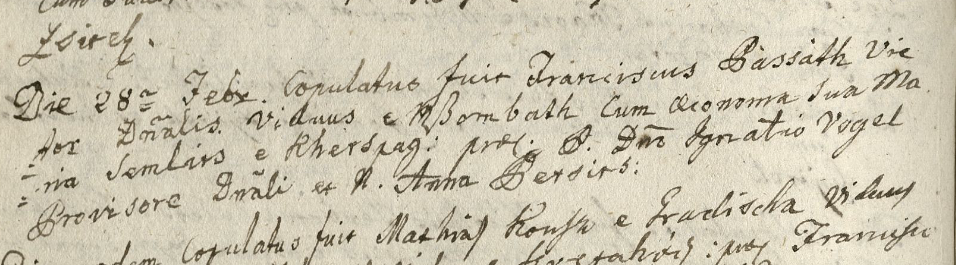 Zsitek.
Die 28ᵃ Febr. Copulatus fuit Franciscus Passath Vie
=tor Dñalis Viduus e Nßombath Cum Œconoma Sua Ma
=ria Semlits e Kherspagi præs. P. Dnō Ignatio Vogel
Provisore Dñali et N. Anna Persits:
Copulatus fuit Mathias e Gradischa Viduus
præs Francisc